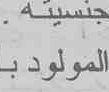 جنسيته
المولود بـ